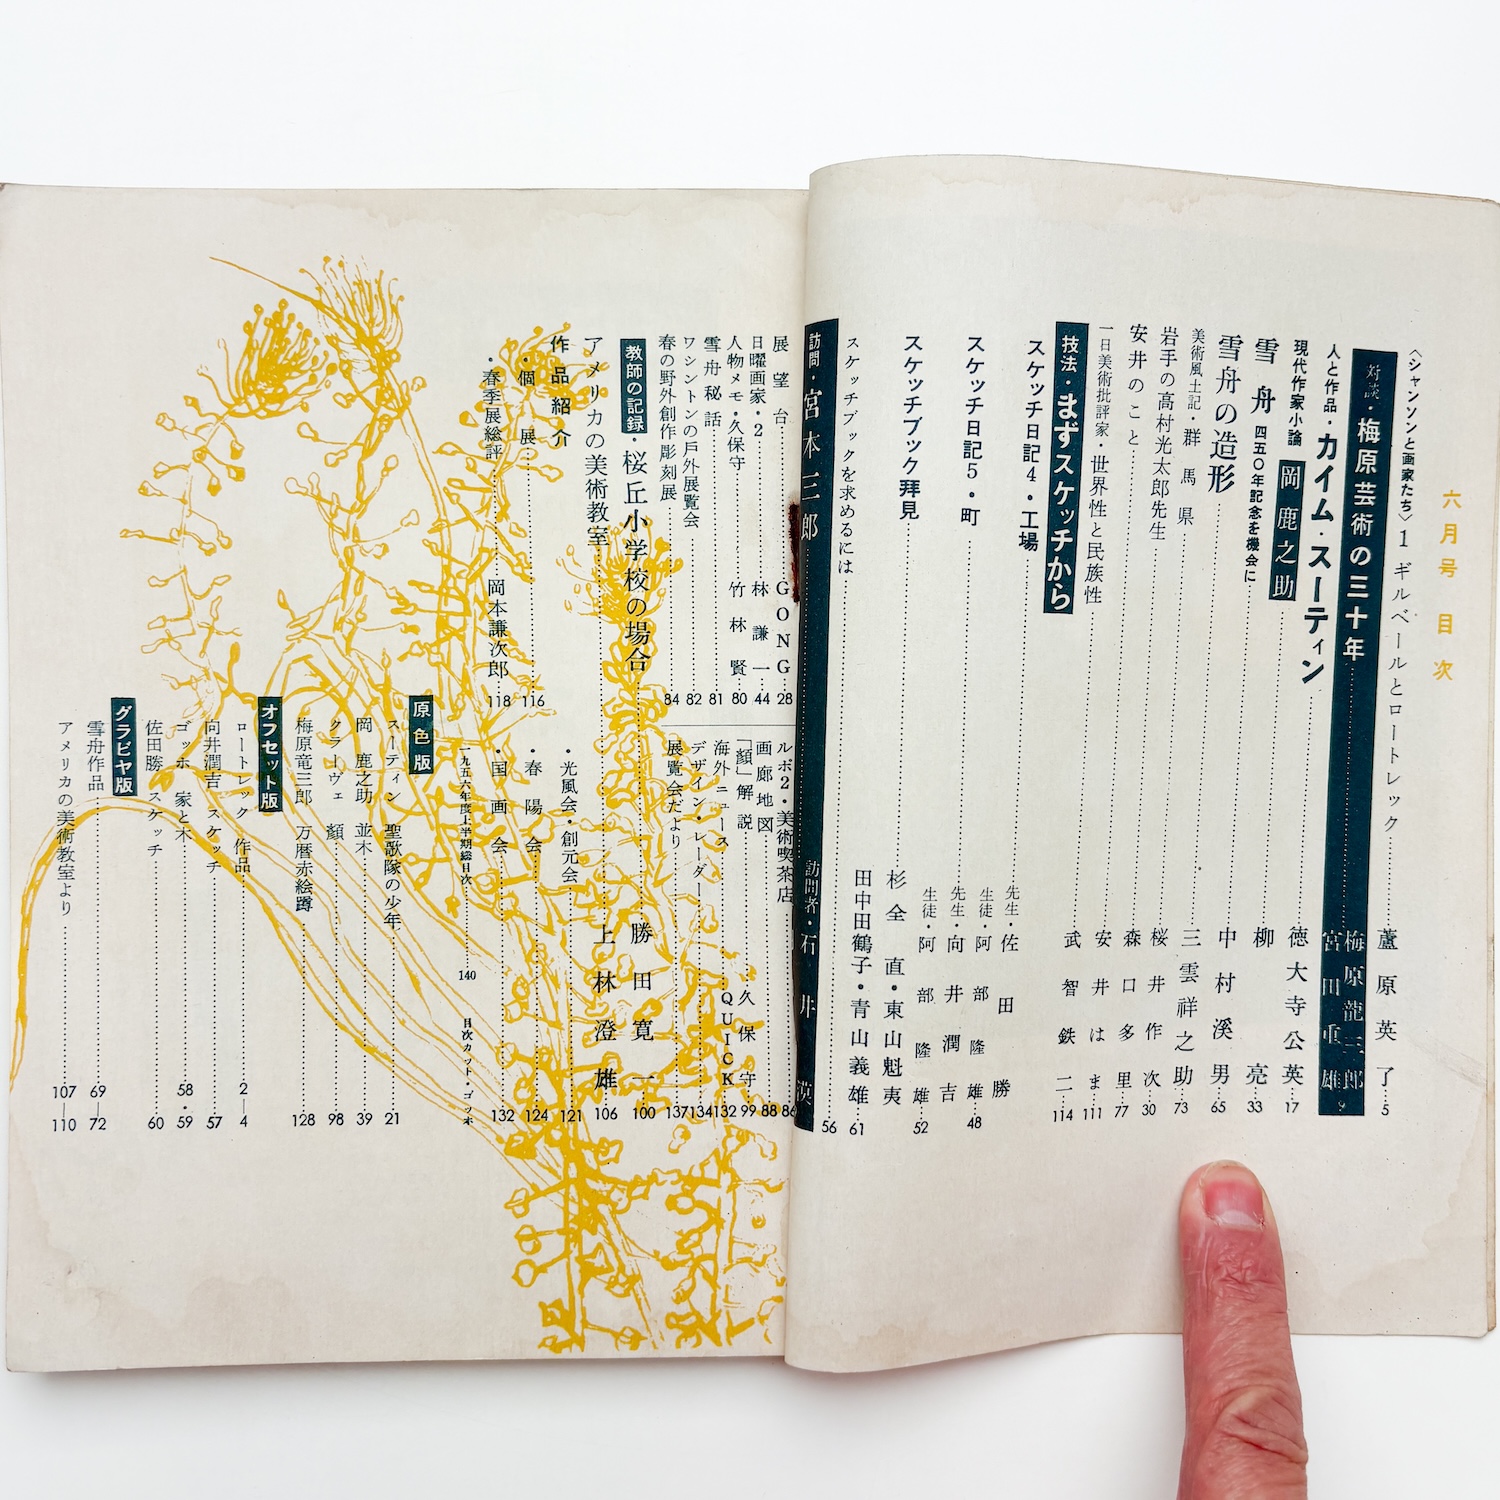 六月号 目次
〈シャンソンと画家たち〉1 ギルベールとロートレック……蘆原英了…5
対談・梅原芸術の三十年……梅原龍三郎 宮田重雄 9
人と作品・カイム・スーティン……徳大寺公英…17
現代作家小論 岡鹿之助……柳亮…33
雪舟 四五〇年記念を機会に
雪舟の造形……中村溪男…65
美術風土記・群馬県……三雲祥之助…73
岩手の高村光太郎先生……桜井作次…30
安井のこと……森口多里…77
一日美術批評家・世界性と民族性……安井はま…111
武智鉄二…114
技法・まずスケッチから
スケッチ日記4・工場……先生・佐田勝 生徒・阿部隆雄…48
スケッチ日記5・町……先生・向井潤吉 生徒・阿部隆雄…52
スケッチブック拝見……杉全直・東山魁夷 田中田鶴子・青山義雄…61
スケッチブックを求めるには……56
訪問・宮本三郎……訪問者・石井漠
展望台……GONG…28
日曜画家・2……林謙一…44
人物メモ・久保守……竹林賢…80
雪舟秘話……81
ワシントンの戸外展覧会……82
春の野外創作彫刻展……84
ルポ2・美術喫茶店……86
画廊地図……88
「顔」解説……久保守…99
海外ニュース……QUICK…132
デザイン・レーダー……134
展覧会だより……137
教師の記録・桜丘小学校の場合……勝田寛一…100
アメリカの美術教室……上林澄雄…106
作品紹介
・個展……116
・春季展総評……岡本謙次郎…118
・光風会・創元会……121
・春陽会……124
・国画会……132
一九五六年度上半期総目次……140
目次カット・ゴッホ
原色版
スーティン 聖歌隊の少年……21
岡鹿之助 並木……39
クラーヴェ 顔……98
梅原竜三郎 万暦赤絵蹲……128
オフセット版
ロートレック 作品……2―4
向井潤吉 スケッチ……57
ゴッホ 家と木……58・59
佐田勝 スケッチ……60
グラビヤ版
雪舟作品……69―72
アメリカの美術教室より……107―110